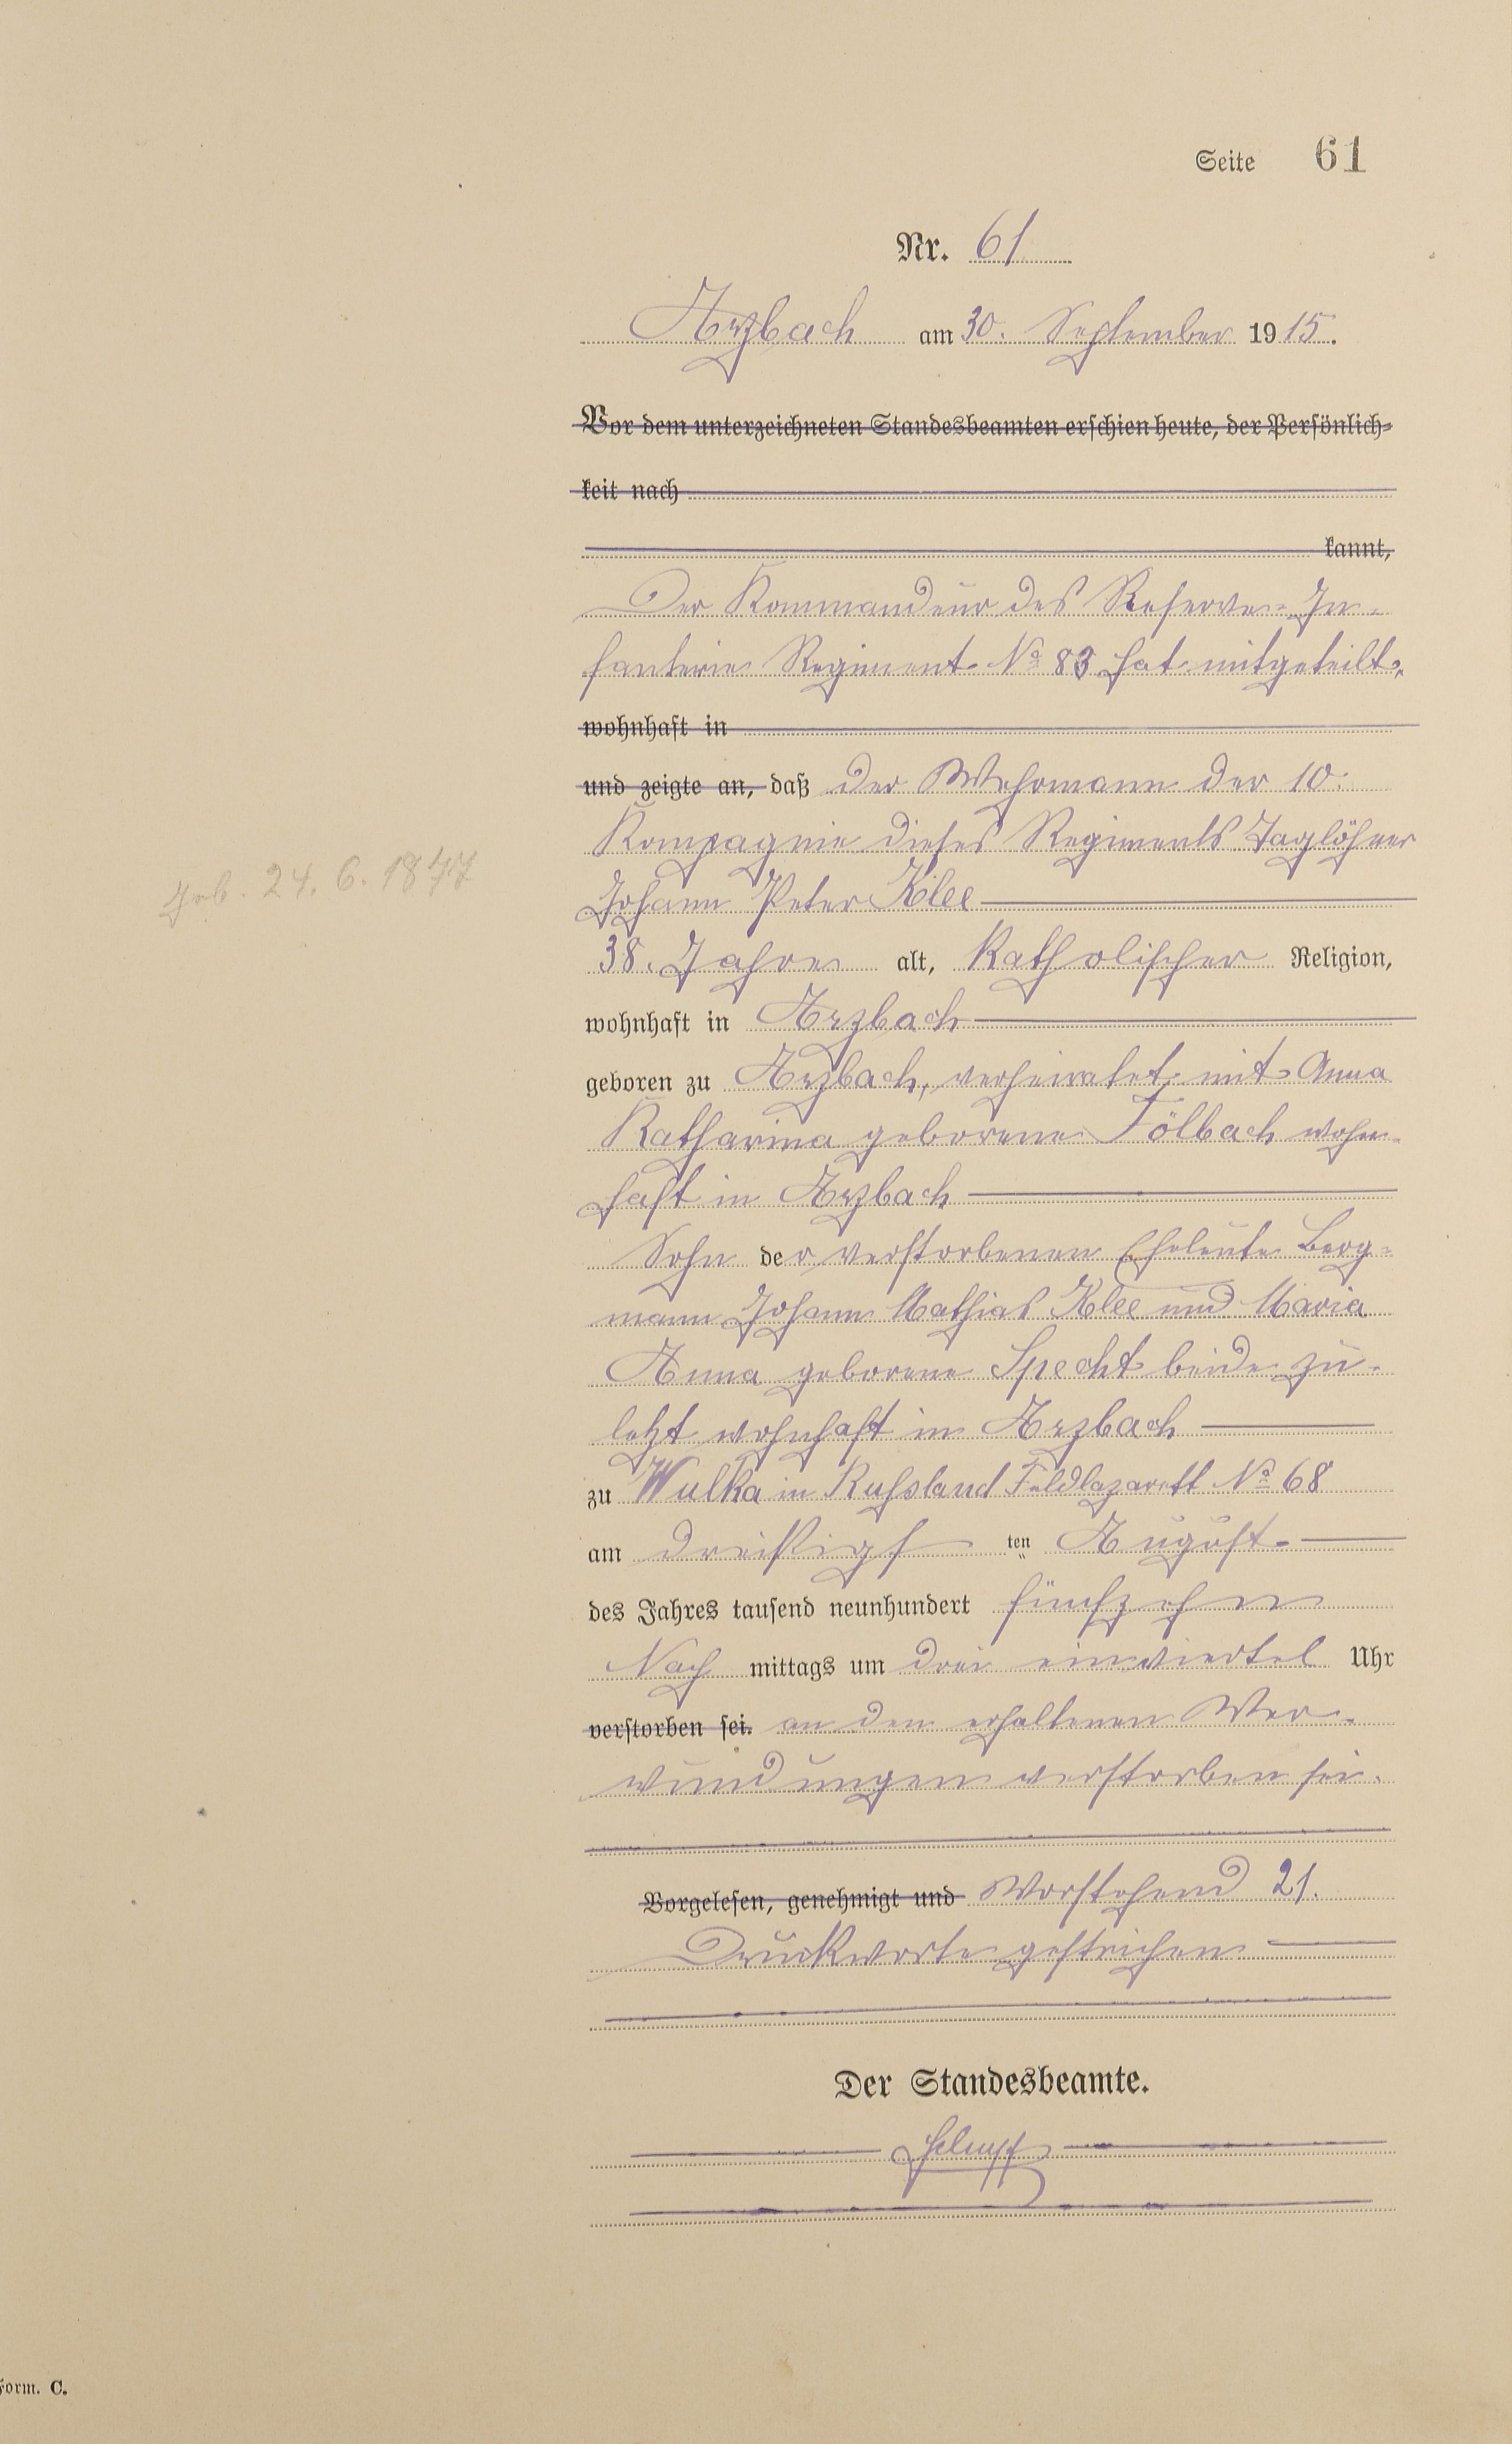 Seite 61
Nr. 61
Arzbach am 30. September 1915.
Vor dem unterzeichneten Standesbeamten erschien heute, der Persönlich-
keit nach
kannt,
Der Kommandeur des Reserve-In-
fanterie Regiment No 83 hat mitgeteilt,
wohnhaft in
und zeigte an, daß der Wehrmann der 10.
Kompagnie dieses Regiments Taglöhner
Johann Peter Klee
geb. 24. 6. 1877
38. Jahre alt, Katholischer Religion,
wohnhaft in Arzbach
geboren zu Arzbach, verheiratet mit Anna
Katharina geborene Fölbach wohn-
haft in Arzbach
Sohn der verstorbenen Eheleute Berg-
mann Johann Mathias Klee und Maria
Anna geborene Specht beide zu-
letzt wohnhaft in Arzbach
zu Wulka in Russland Feldlazarett No 68
am dreißigsten August
des Jahres tausend neunhundert fünfzehn
Nachmittags um drei einviertel Uhr
verstorben sei. an den erhaltenen Ver-
wundungen verstorben sei.
Vorgelesen, genehmigt und Vorstehend 21.
Druckworte gestrichen
Der Standesbeamte.
Form. C.